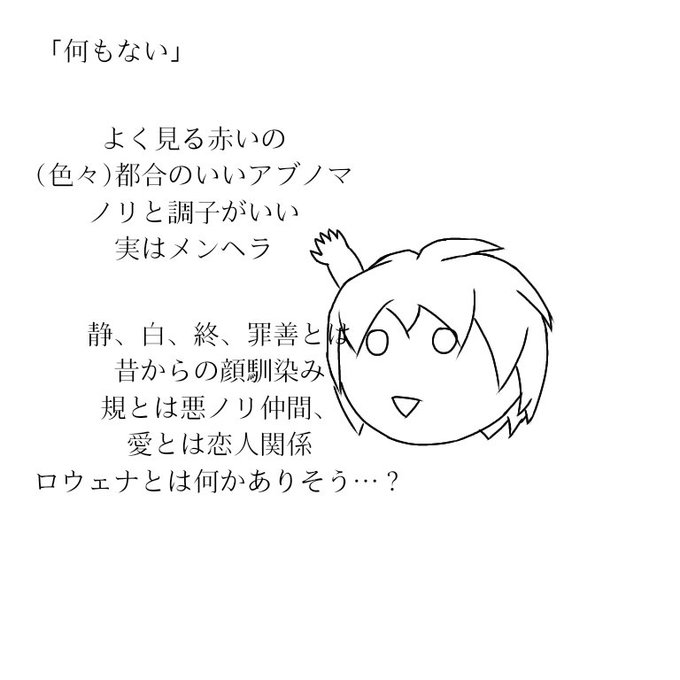 「何もない」
よく見る赤いの
(色々)都合のいいアブノマ
ノリと調子がいい
実はメンヘラ
静、白、終、罪善とは
昔からの顔馴染み
規とは悪ノリ仲間、
愛とは恋人関係
ロウェナとは何かありそう…?